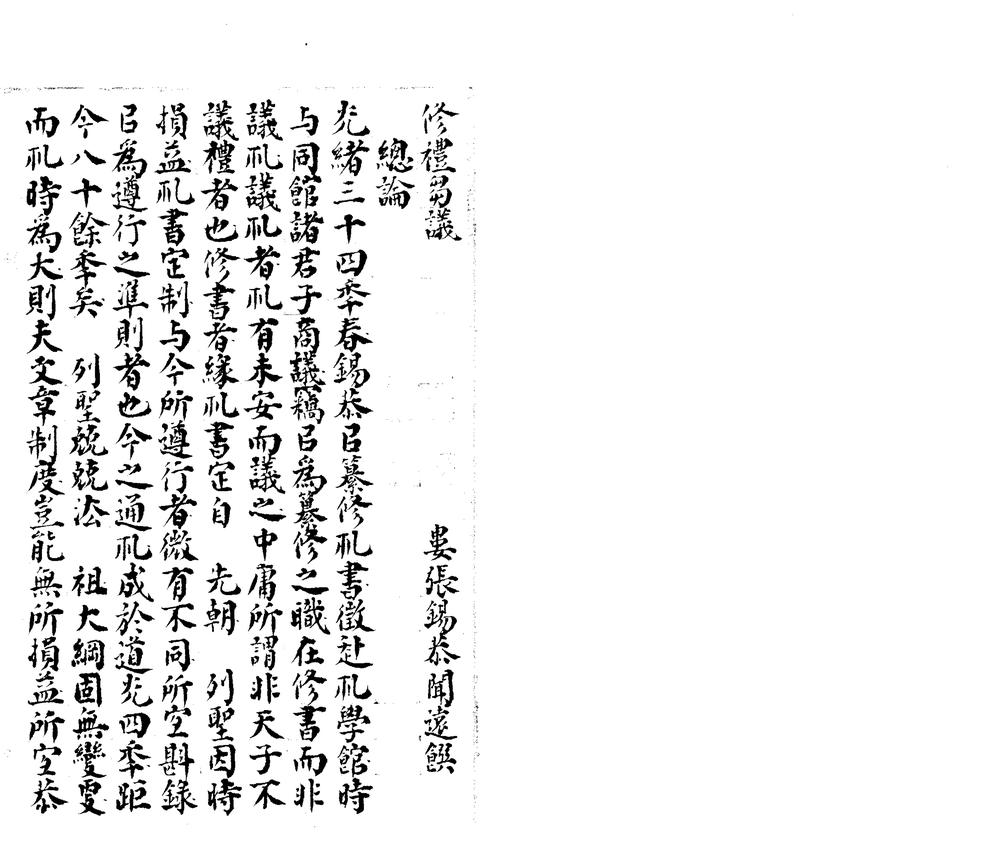 修禮芻議　婁張錫恭聞遠饌
總論
光緒三十四秊春錫恭㠯纂修礼書徵赴礼學館時
与同館諸君子商議竊㠯爲纂修之職在修書而非
議礼議礼者礼有未安而議之中庸所謂非天子不
議禮者也修書者緣礼書定自　先朝　列聖因時
損益礼書定制与今所遵行者微有不同所宐斟錄
㠯爲遵行之準則者也今之通礼成於道光四秊距
今八十餘秊矣　列聖兢兢法　祖大綱固無變更
而礼時爲大則夫文章制度豈能無所損益所宐恭